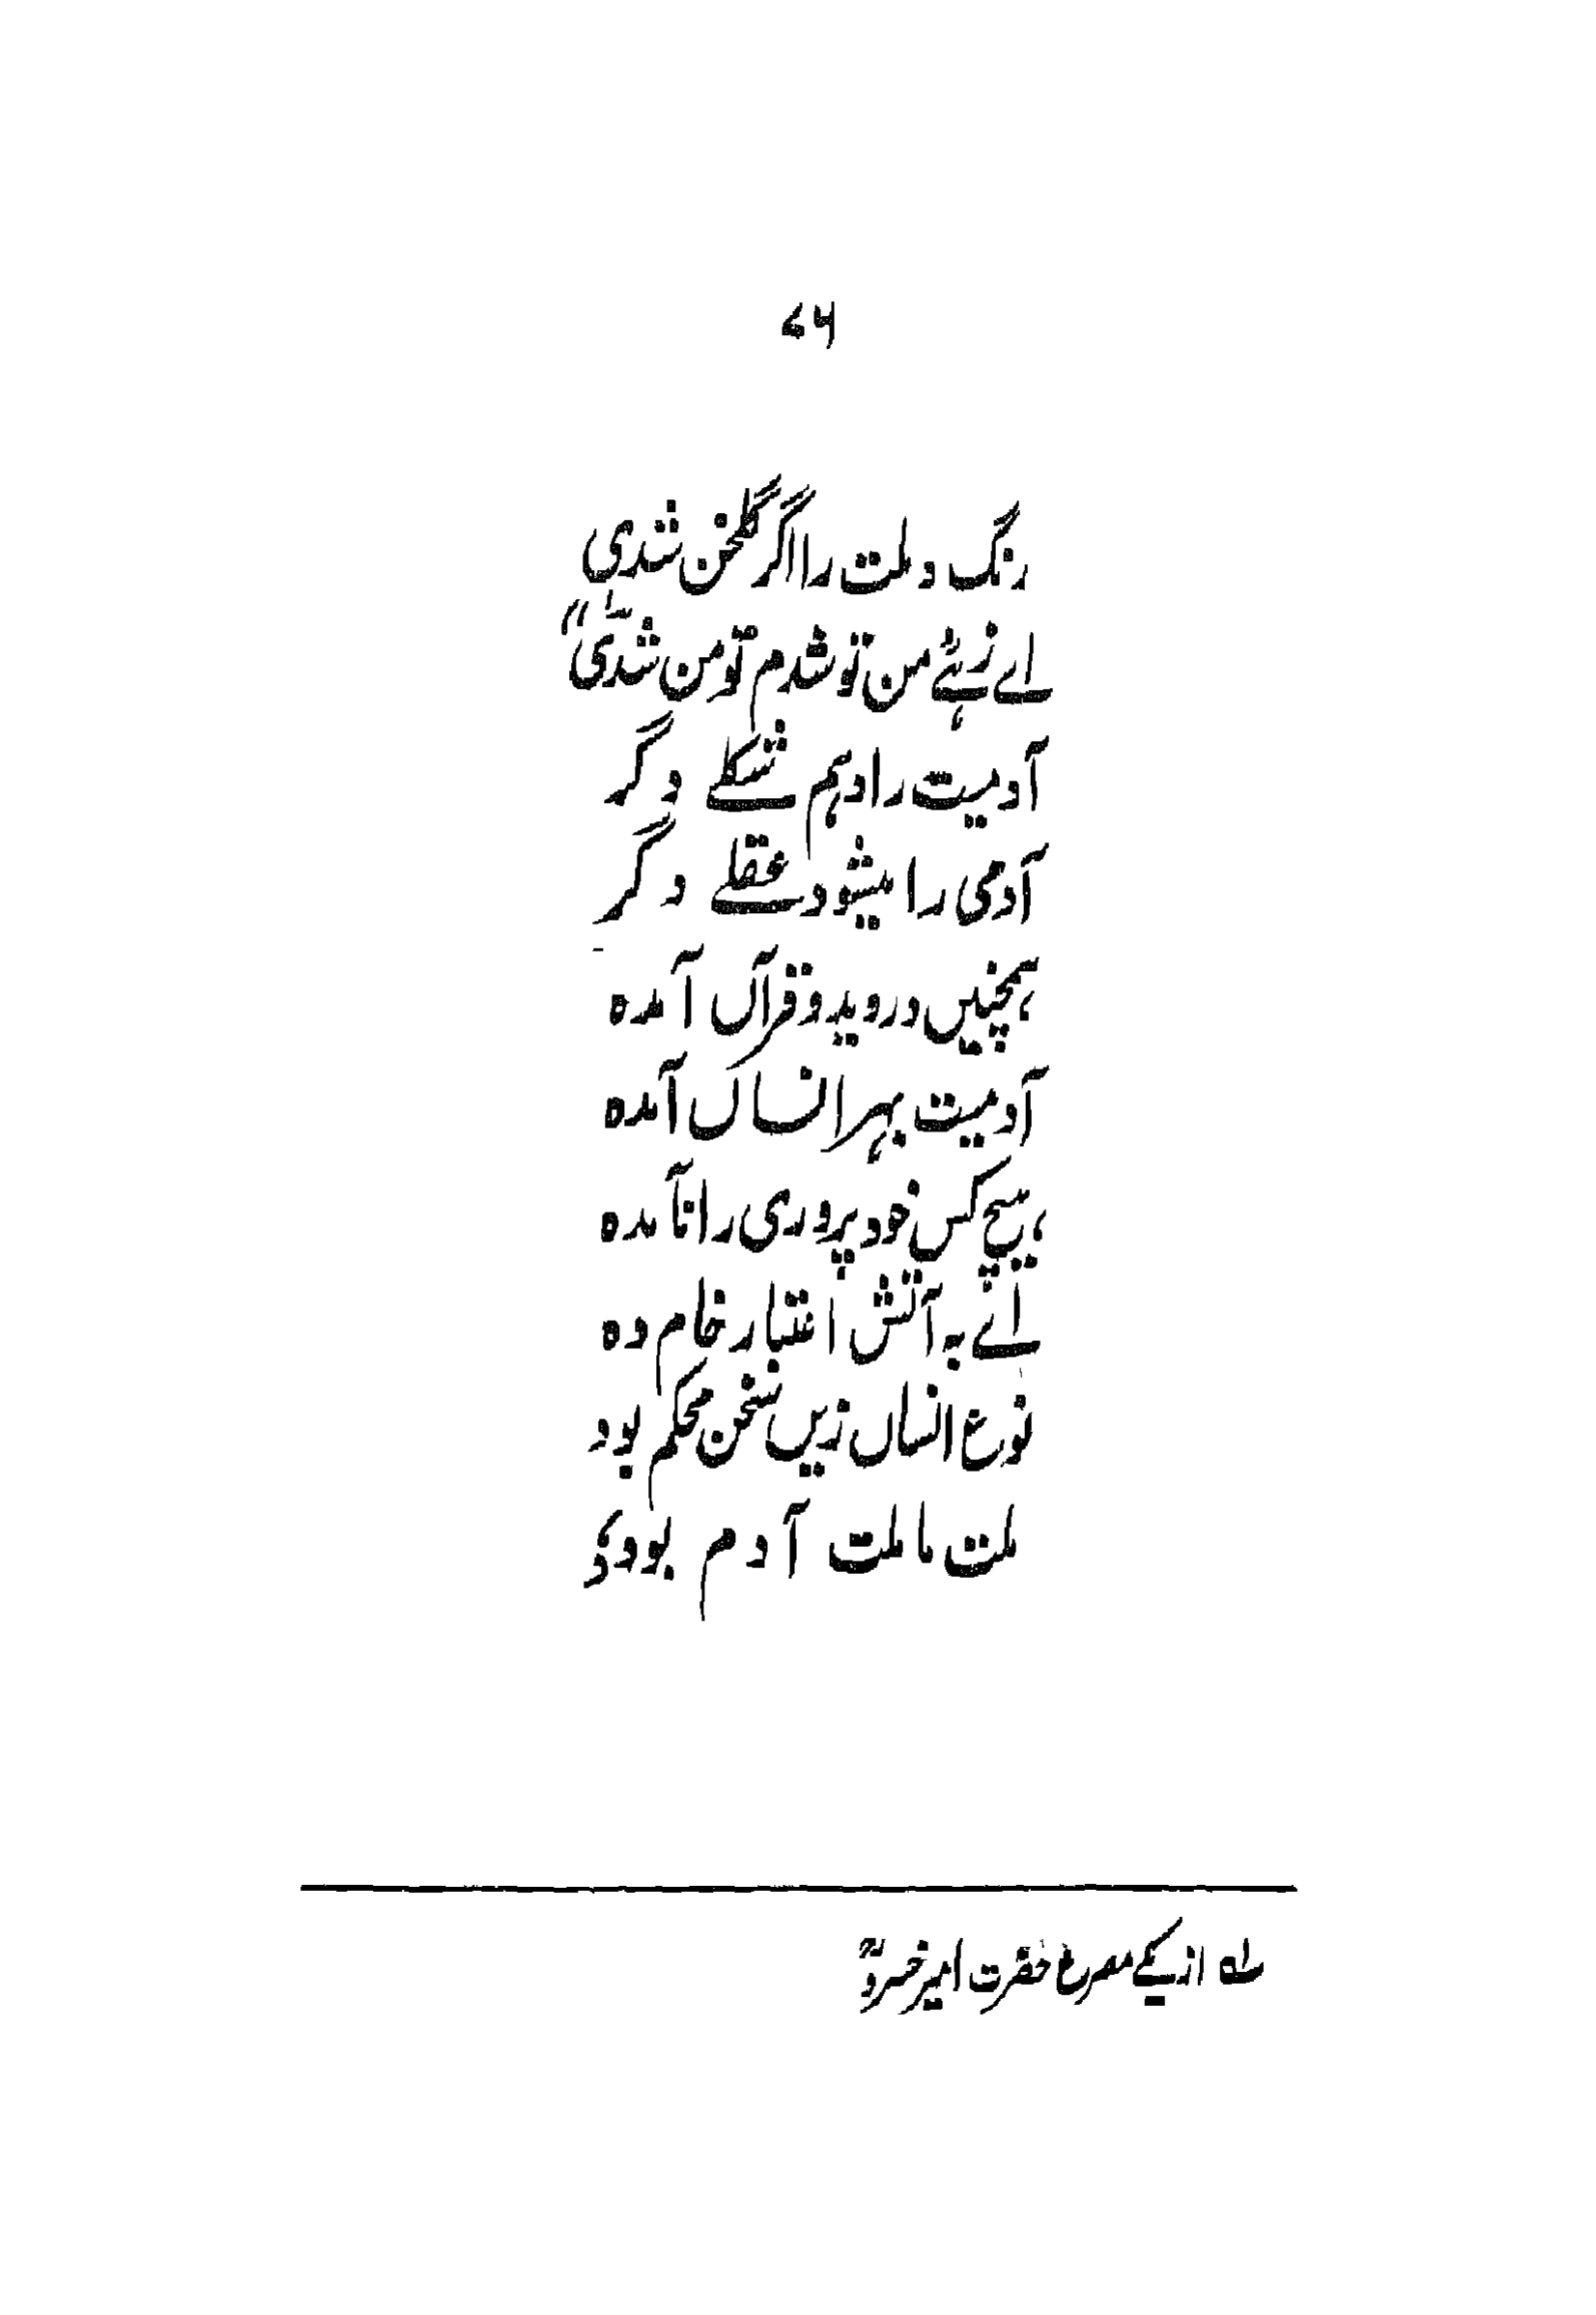 ۷۶
رنگ و ملت را اگر گلخن شدی
اے زہئے من تو شدم تو من شدی؎۱"
آدمیت را دہم شکلے دگر
آدمی را میشود عقلے دگر
ہمچنیں در وید و قرآں آمدہ
آدمیت بہر انساں آمدہ
ہیچ کس خود پروری را نامدہ
اے بہ آتش اعتبار خام دہ
نوع انساں زیں سخن محکم بود
ملت ما ملت آدم بود؟
؎۱ از یکے مصرع حضرت امیر خسروؒ